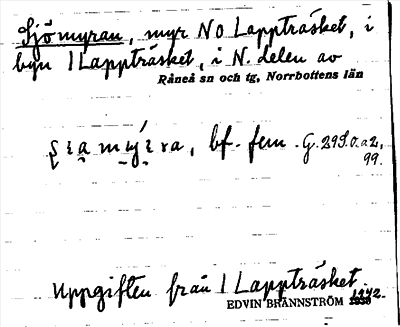 Sjömyran, myr NO Lappträsket, i
byn 1 Lappträsket, i N. delen av
Råneå sn och tg, Norrbottens län
bf. fem. G. 29 S.o.a2,
99.
Uppgiften från 1 Lappträsket.
EDVIN BRÄNNSTRÖM 1942.